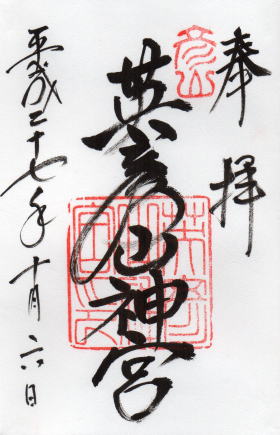 奉拝
英彦山神宮
平成二十七年十月六日